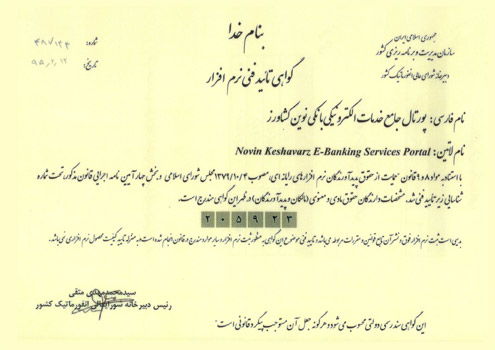 بنام خدا
جمهوری اسلامی ایران
سازمان مدیریت و برنامه ریزی کشور
دبیرخانه شورای عالی انفورماتیک کشور
شماره:
تاریخ:
گواهی تائید فنی نرم افزار
نام فارسی: پورتال جامع خدمات الکترونیکی بانکی نوین کشاورز
نام لاتین: Novin Keshavarz E-Banking Services Portal
با استناد به مواد ۸ و ۹ قانون حمایت از حقوق پدیدآورندگان نرم افزارهای رایانه ای، مصوب ۱۳۷۹/۱۰/۴ مجلس شورای اسلامی و بخش چهار آیین نامه اجرایی قانون مذکور، تحت شماره
شناسایی زیر تایید فنی شد. مشخصات دارندگان حقوق مادی و معنوی (مالکان و پدیدآورندگان) در ظهر این گواهی مندرج است.
۲۰۵۹۲۳
بدیهی است ثبت نرم افزار فوق و نشر آن تابع قوانین و مقررات مربوطه می باشد و تایید فنی موضوع این گواهی به منظور ثبت نرم افزار و سایر موارد مندرج در قانون انجام شده است و به منزله تایید کیفیت محصول نرم افزاری نمی باشد.
سیدمحمدمهدی متقی
رئیس دبیرخانه شورایعالی انفورماتیک کشور
این گواهی سندرسمی دولتی محسوب می شود و هرگونه جعل آن مستوجب پیگرد قانونی است.